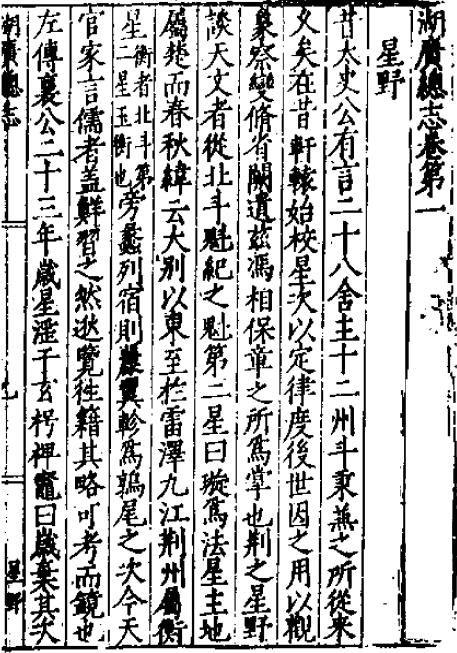 湖廣總志卷第一
星野
昔太史公有言二十八舍主十二州斗秉兼之所從來
久矣在昔軒轅始校星次以定律度後世因之用以觀
象察變脩省闕遺茲馮相保章之所爲掌也荆之星野
談天文者從北斗魁紀之魁第二星曰璇爲法星主地
屬楚而春秋緯云大别以東至於雷澤九江荆州屬衡
星衡者北斗第二星玉衡也旁蠡列宿則翼軫爲鶉尾之次今天
官家言儒者盖鮮習之然逖覽徃籍其略可考而鏡也
左傳襄公二十三年歳星滛于玄枵裨竈曰歳棄其次
湖廣總志
星野